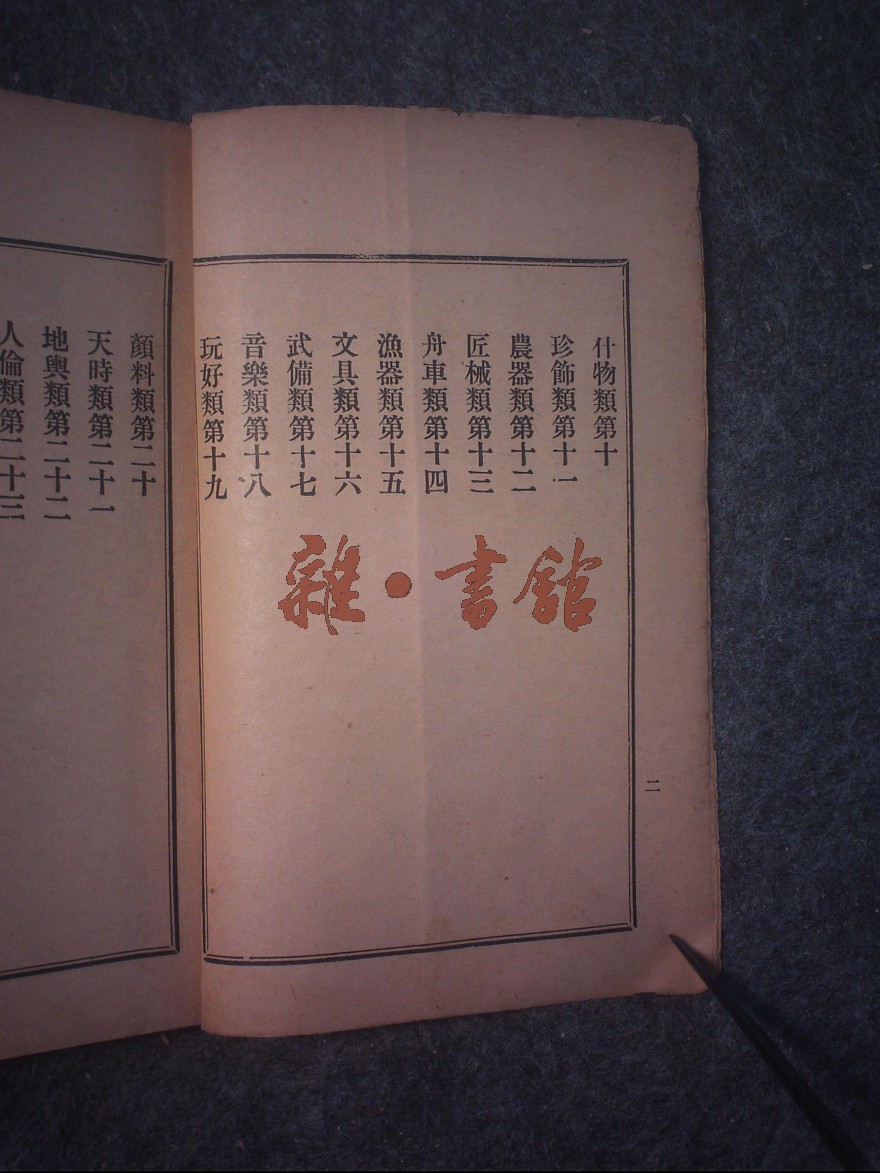 什物類第十
珍飾類第十一
農器類第十二
匠械類第十三
舟車類第十四
漁器類第十五
文具類第十六
武備類第十七
音樂類第十八
玩好類第十九
二
顏料類第二十
天時類第二十一
地輿類第二十二
人倫類第二十三
雜·書館